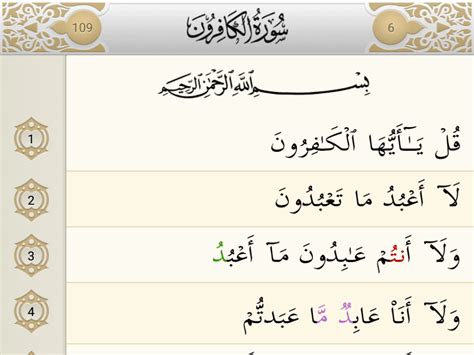 109 سُورَةُ الكَافِرُونَ 6
بِسْمِ اللَّهِ الرَّحْمَٰنِ الرَّحِيمِ
1 قُلۡ يَـٰٓأَيُّهَا ٱلۡكَـٰفِرُونَ
2 لَآ أَعۡبُدُ مَا تَعۡبُدُونَ
3 وَلَآ أَنتُمۡ عَـٰبِدُونَ مَآ أَعۡبُدُ
4 وَلَآ أَنَا۠ عَابِدٌ مَّا عَبَدتُّمۡ